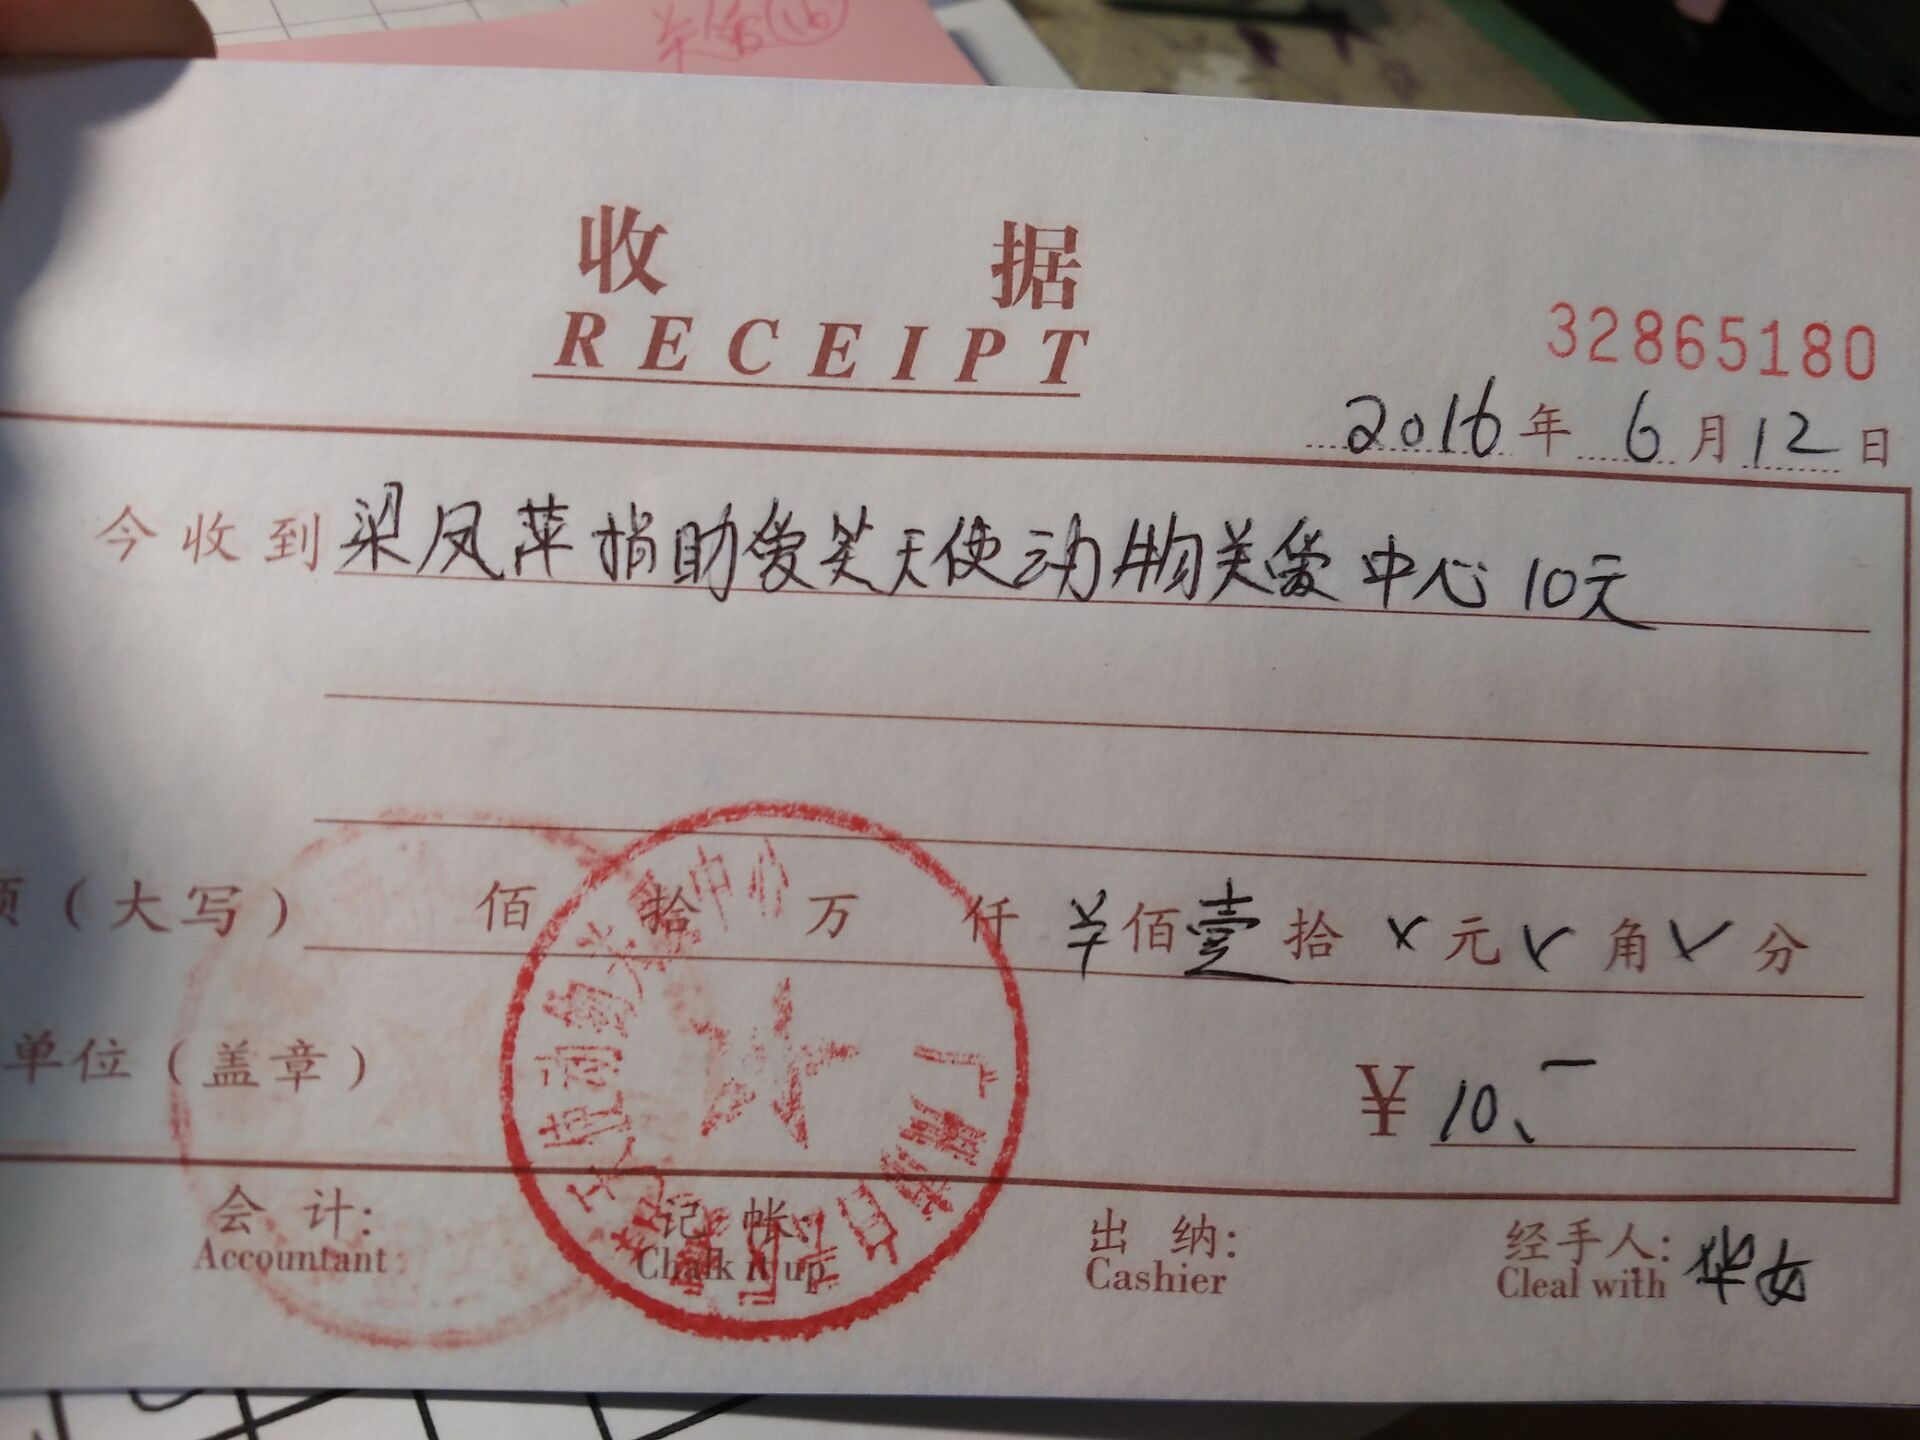 收 据
RECEIPT
32865180
2016年 6月12日
今收到 梁凤萍捐助爱笑天使动物关爱中心10元
(大写) 佰 拾 万 仟 羊佰壹拾 x 元 x 角 x 分
单位(盖章)
¥ 10、一
会 计: 记 帐: 出 纳: 经手人: 华女
Accountant Chalk it up Cashier Cleal with